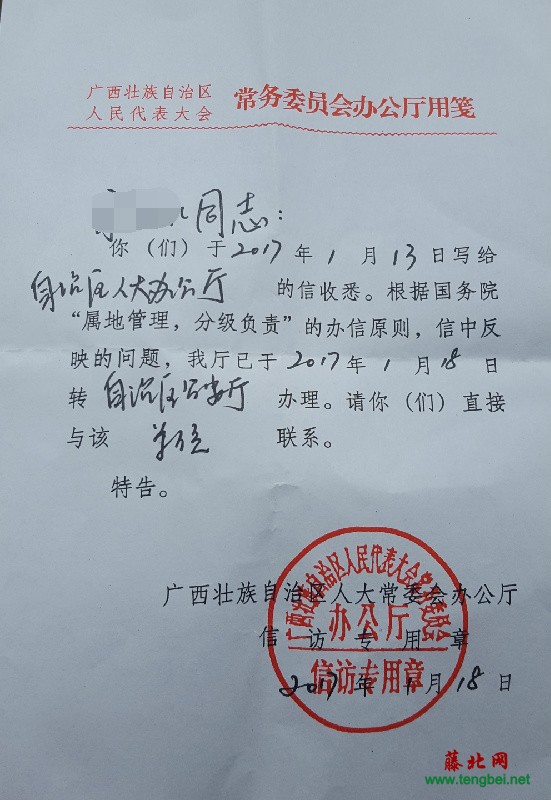 广西壮族自治区
人民代表大会 常务委员会办公厅用笺
同志：
你（们）于2017年1月13日写给
自治区人大办公厅的信收悉。根据国务院
“属地管理，分级负责”的办信原则，信中反
映的问题，我厅已于2017年1月18日
转自治区公安厅办理。请你（们）直接
与该单位联系。
特告。
广西壮族自治区人大常委会办公厅
信访专用章
2017年1月18日
广西壮族自治区人民代表大会常务委员会
办公厅
信访专用章
藤北网
www.tengbei.net